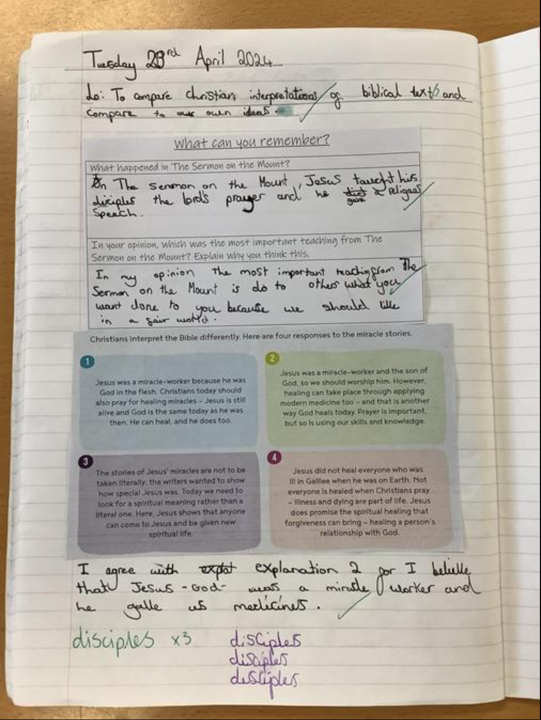 Tuesday 23rd April 2024
Lo: To compare christian interpretations of biblical texts and
compare to our own ideas.
What can you remember?
What happened in The Sermon on the Mount?
In The sermon on the Mount, Jesus taught his
diciples the lord's prayer and he gave a religeas
speech.
In your opinion, which was the most important teaching from The
Sermon on the Mount? Explain why you think this.
In my opinion the most important teaching from The
Sermon on the Mount is do to others what you
want done to you because we should live
in a fair world.
Christians interpret the Bible differently. Here are four responses to the miracle stories.
1
Jesus was a miracle-worker because he was
God in the flesh. Christians today should
also pray for healing miracles – Jesus is still
alive and God is the same today as he was
then. He can heal, and he does too.
2
Jesus was a miracle-worker and the son of
God, so we should worship him. However,
healing can take place through applying
modern medicine too – and that is another
way God heals today. Prayer is important,
but so is using our skills and knowledge.
3
The stories of Jesus' miracles are not to be
taken literally: the writers wanted to show
how special Jesus was. Today we need to
look for a spiritual meaning rather than a
literal one. Here, Jesus shows that anyone
can come to Jesus and be given new
spiritual life.
4
Jesus did not heal everyone who was
ill in Galilee when he was on Earth. Not
everyone is healed when Christians pray
– illness and dying are part of life. Jesus
does promise the spiritual healing that
forgiveness can bring – healing a person's
relationship with God.
I agree with explanation 2 for I belielle
that Jesus -God- was a miracle worker and
he galle us medicines.
disciples x3
disciples
disciples
desciples